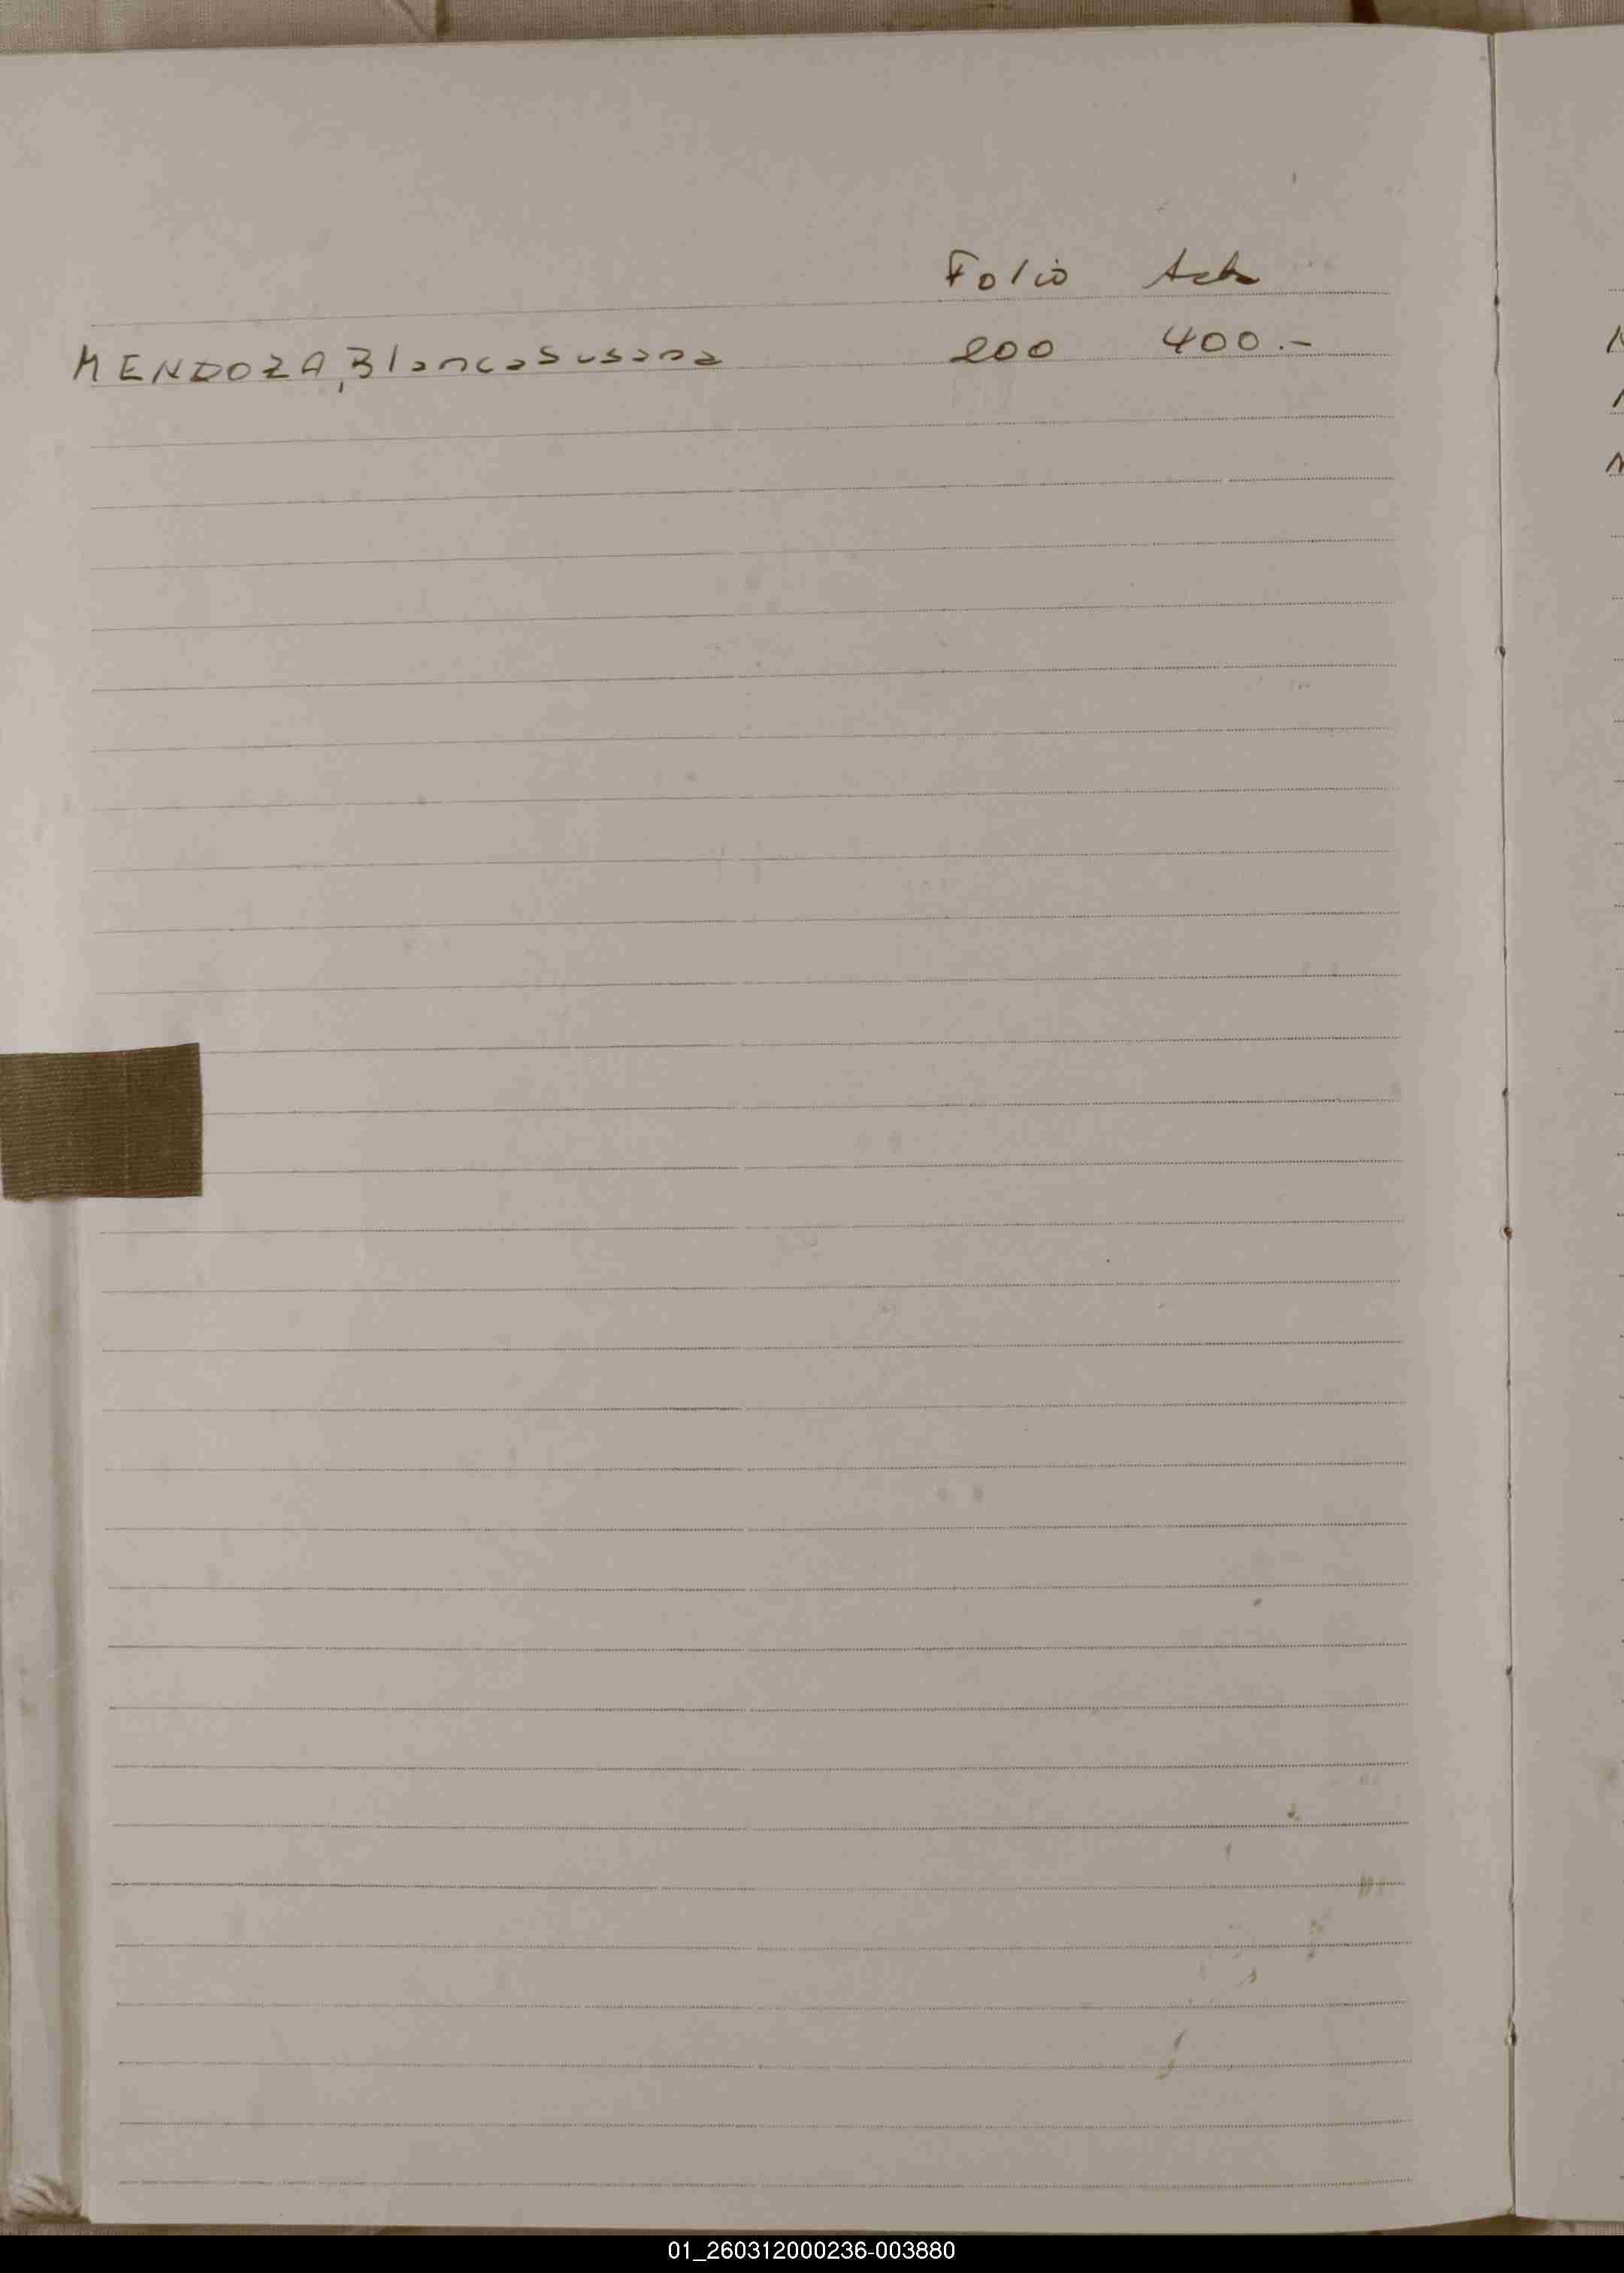 Folio Acta
MENDOZA, Blanca Susana 200 400.-
01_260312000236-003880